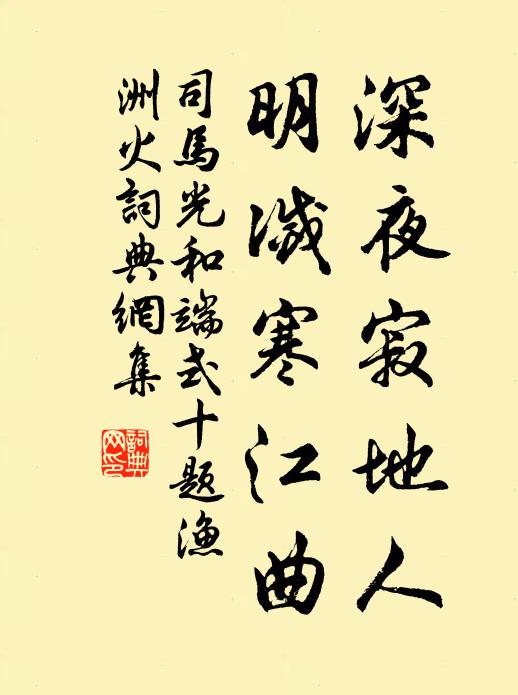 深夜寂地人
明滅寒江曲
司馬光和端式十題漁
洲火詞典網集
詞典網印